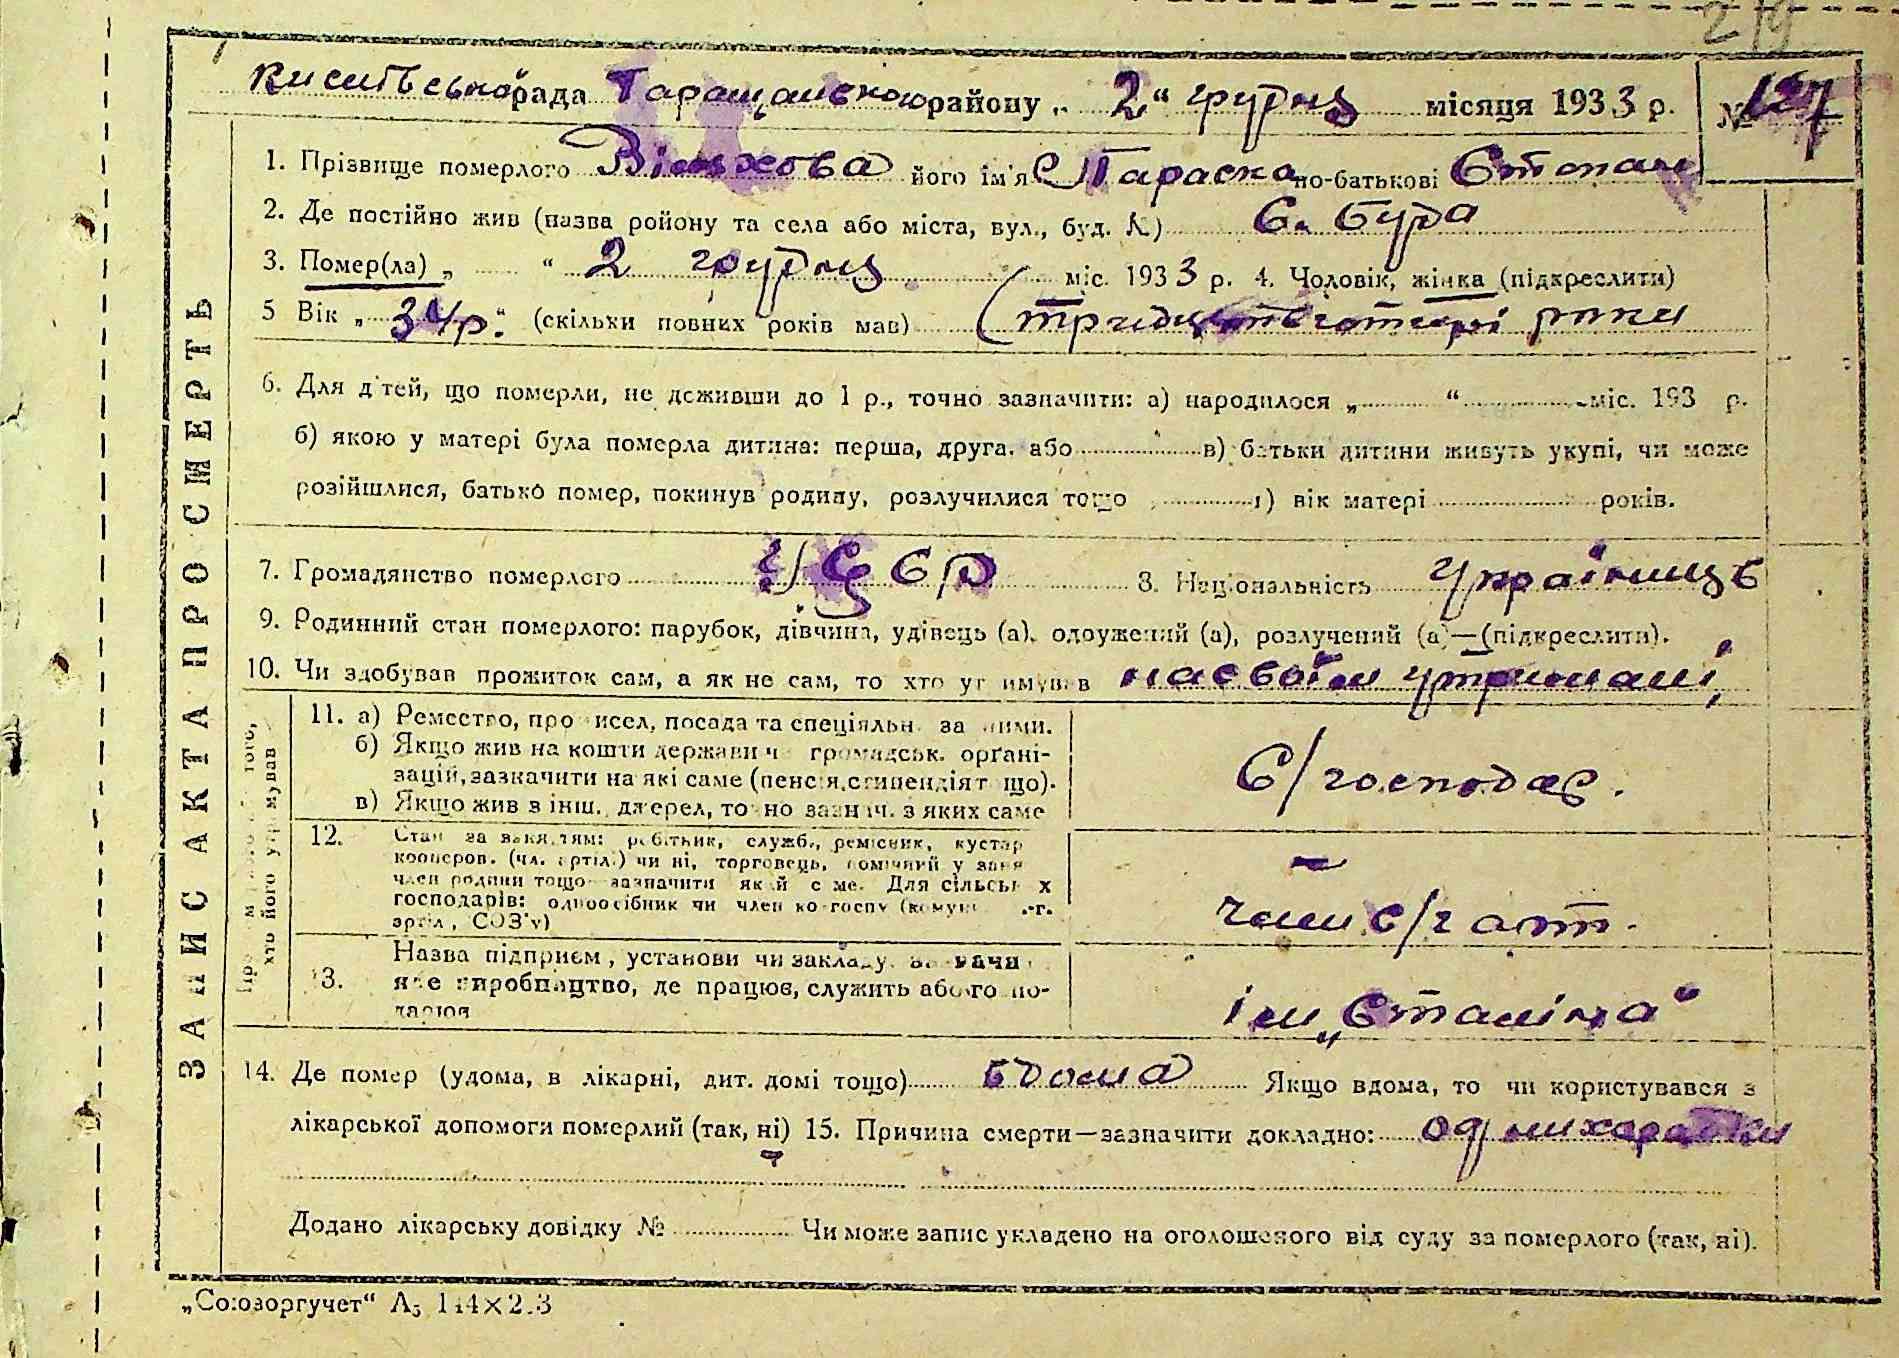 219
рада Таращанського району „ 2 “ грудня місяця 1933 р. № 127
1. Прізвище померлого його ім'я Параска по-батькові
2. Де постійно жив (назва ройону та села або міста, вул., буд. №) с. Буда
3. Помер(ла) „ “ 2 грудня міс. 1933 р. 4. Чоловік, жінка (підкреслити)
5 Вік „ 34 р. “ (скільки повних років мав) (тридцять чотирі роки
6. Для дітей, що померли, не доживши до 1 р., точно зазначити: а) народилося „ “ міс. 193 р.
б) якою у матері була померла дитина: перша, друга, або в) батьки дитини живуть укупі, чи може
розійшлися, батько помер, покинув родину, розлучилися тощо г) вік матері років.
7. Громадянство померлого УССР 8. Національність українць
9. Родинний стан померлого: парубок, дівчина, удівець (а), одружений (а), розлучений (а)—(підкреслити).
10. Чи здобував прожиток сам, а як не сам, то хто утримував на своїм утримані
ЗАПИС АКТА ПРО СМЕРТЬ
того, хто його утримував
11. а) Ремество, промисел, посада та спеціяльн. за ними.
б) Якщо жив на кошти держави чи громадськ. орґані-
зацій, зазначити на які саме (пенсія, стипендія тощо).
в) Якщо жив з інш. джерел, точно зазнач. з яких саме
С/господар.
12. Стан за заняттям: робітник, служб., ремісник, кустар
кооперов. (чл. артілі) чи ні, торговець, помічний у занят
член родини тощо зазначити який саме. Для сільських
господарів: одноосібник чи член колгоспу (комуни, с.-г.
артіл, СОЗ'у)
член с/г арт.
13. Назва підприєм., установи чи закладу,
яке виробництво, де працює, служить або го по-
ім „Сталіна“
14. Де помер (удома, в лікарні, дит. домі тощо) вдома Якщо вдома, то чи користувався з
лікарської допомоги померлий (так, ні) 15. Причина смерти—зазначити докладно: од лихорадки
Додано лікарську довідку № Чи може запис укладено на оголошеного від суду за померлого (так, ні).
„Союзоргучет“ А5 144×2.3